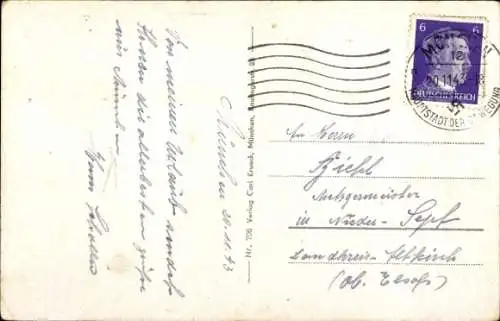 München 20.11.43
Von meinem Urlaub sendet
Ihnen die allerbesten Grüße
aus München
Nr. 706 Verlag Carl Krenek, München,
6 6
20.11.43
HAUPTSTADT DER BEWEGUNG
DEUTSCHES REICH
An Herrn
Amtsgermeister
in Nieder-Sept
Landkreis-Altkirch
(Ob. Elsaß)